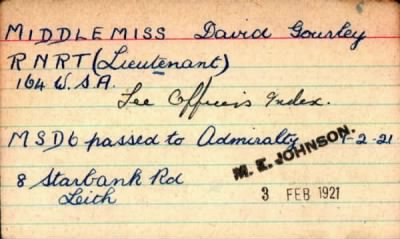 MIDDLEMISS David Gourley
RNRT (Lieutenant)
164 W.S.A.
See Officers Index.
MSD6 passed to Admiralty 1-2-21
M. E. JOHNSON.
8 Starbank Rd
3 FEB 1921
Leith